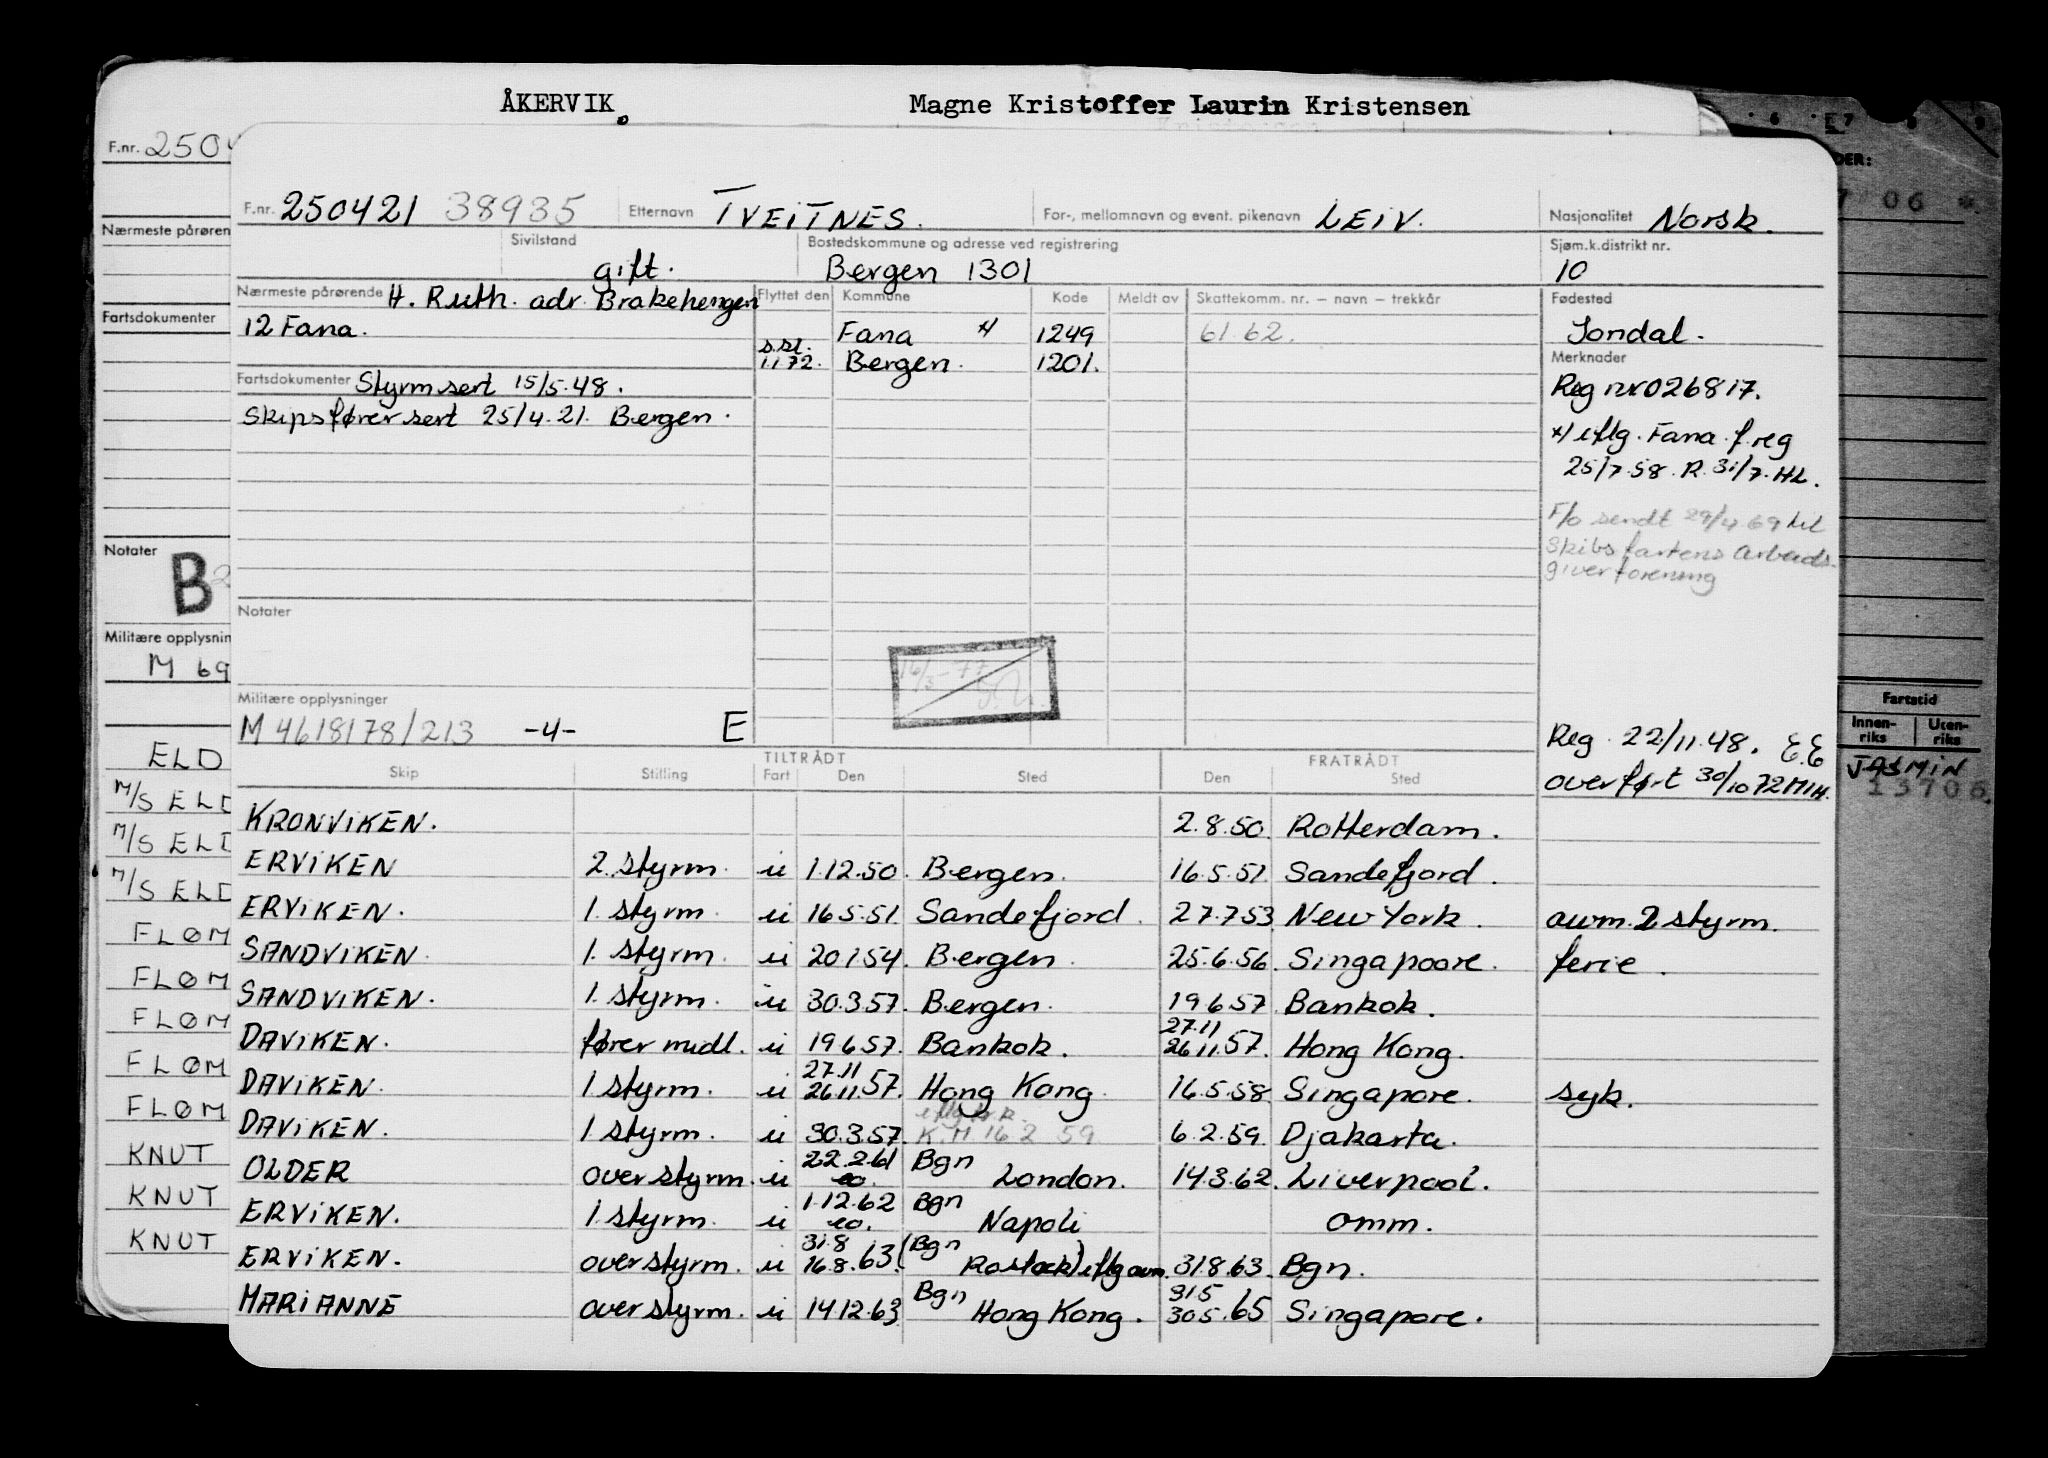 ÅKERVIK. Magne Kristoffer Laurin Kristensen
F.nr. 250421 38935 Etternavn TVEITNES. For-, mellomnavn og event. pikenavn LEIV. Nasjonalitet Norsk.
Sivilstand gift. Bostedskommune og adresse ved registrering Bergen 1301 Sjøm.k.distrikt nr. 10
Nærmeste pårørende H. Ruth. adr. Brakehengen
12 Fana.
Flyttet den Kommune Kode Meldt av Skattekomm. nr. – navn – trekkår
Fana x) 1249 61.62.
s.st. 1.1.72. Bergen. 1201.
Fødested
Jondal.
Merknader
Reg nr 026817.
x) iflg. Fana f.reg
25/7.58. R. 31/7. HL.
F/o sendt 29/4.69 til
Skibsfartens Arbeids-
giverforening
Reg. 22/11.48. E.E
overført 30/10 72 MIH.
Fartsdokumenter Styrmsert 15/5.48.
Skipsfører sert 25/4.21. Bergen.
Notater
16/3-77
Militære opplysninger
M 4618178/213 -4- E
TILTRÅDT FRATRÅDT
Skip Stilling Fart Den Sted Den Sted
KRONVIKEN. 2.8.50. Rotterdam.
ERVIKEN 2. styrm. u 1.12.50. Bergen. 16.5.51. Sandefjord.
ERVIKEN. 1. styrm. u 16.5.51. Sandefjord. 27.7.53 New York. avm. 2 styrm.
SANDVIKEN. 1. styrm. u 20.1.54. Bergen. 25.6.56. Singapoore. ferie.
SANDVIKEN. 1. styrm. u 30.3.57. Bergen. 19.6.57 Bankok.
DAVIKEN. fører midl. u 19.6.57. Bankok. 27.11 26.11.57. Hong Kong.
DAVIKEN. 1 styrm. u 27.11 26.11.57. Hong Kong. 16.5.58 Singapore. syk.
DAVIKEN. 1 styrm. u 30.3.57. K.M 16.2 59 6.2.59. Djakarta.
OLDER overstyrm. u 22.2.61 Bgn London. 14.3.62. Liverpool.
ERVIKEN. 1. styrm. u 1.12.62 Bgn Napoli omm.
ERVIKEN. overstyrm. u 31.8 16.8.63. (Bgn Rostock) iflg avm. 31.8.63. Bgn.
MARIANNE overstyrm. u 14.12.63 Bgn Hong Kong. 31.5 30.5.65 Singapore.
F.nr. 250
Nærmeste pårøren
Fartsdokumenter
Notater
B
Militære opplysnin
M 69
ELD
M/S ELD
M/S ELD
M/S ELD
FLØM
FLØM
FLØM
FLØM
FLØM
KNUT
KNUT
KNUT
6 7 8 9
DER:
7 06
Fartstid
Innen-riks Uten-riks
JASMIN
13706.